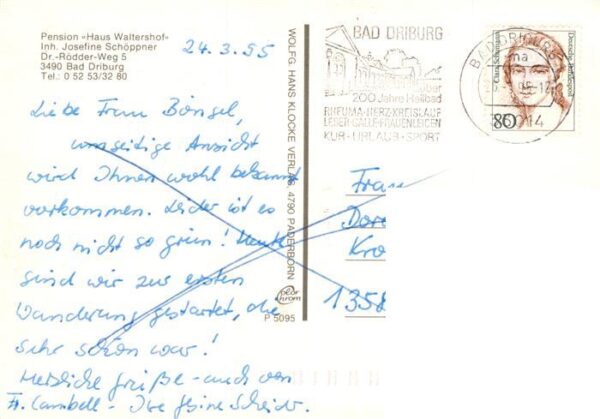 Pension »Haus Waltershof«
Inh. Josefine Schöppner
Dr.-Rödder-Weg 5
3490 Bad Driburg
Tel.: 0 52 53/32 80
24.3.95
Liebe Frau Bänsel,
umseitige Ansicht
wird Ihnen wohl bekannt
vorkommen. Leider ist es
noch nicht so grün! Heute
sind wir zur ersten
Wanderung gestartet, die
sehr schön war!
Herzliche Grüße – auch von
Fr. Cambell – Ihre
WOLFG. HANS KLOCKE VERLAG, 4790 PADERBORN
color chrom
P 5095
BAD DRIBURG
über
200 Jahre Heilbad
RHEUMA-HERZ-KREISLAUF
LEBER-GALLE-FRAUENLEIDEN
KUR-URLAUB-SPORT
BAD DRIBURG
ma
95-12
Clara Schumann
Deutsche Bundespost
80
Frau
Kro